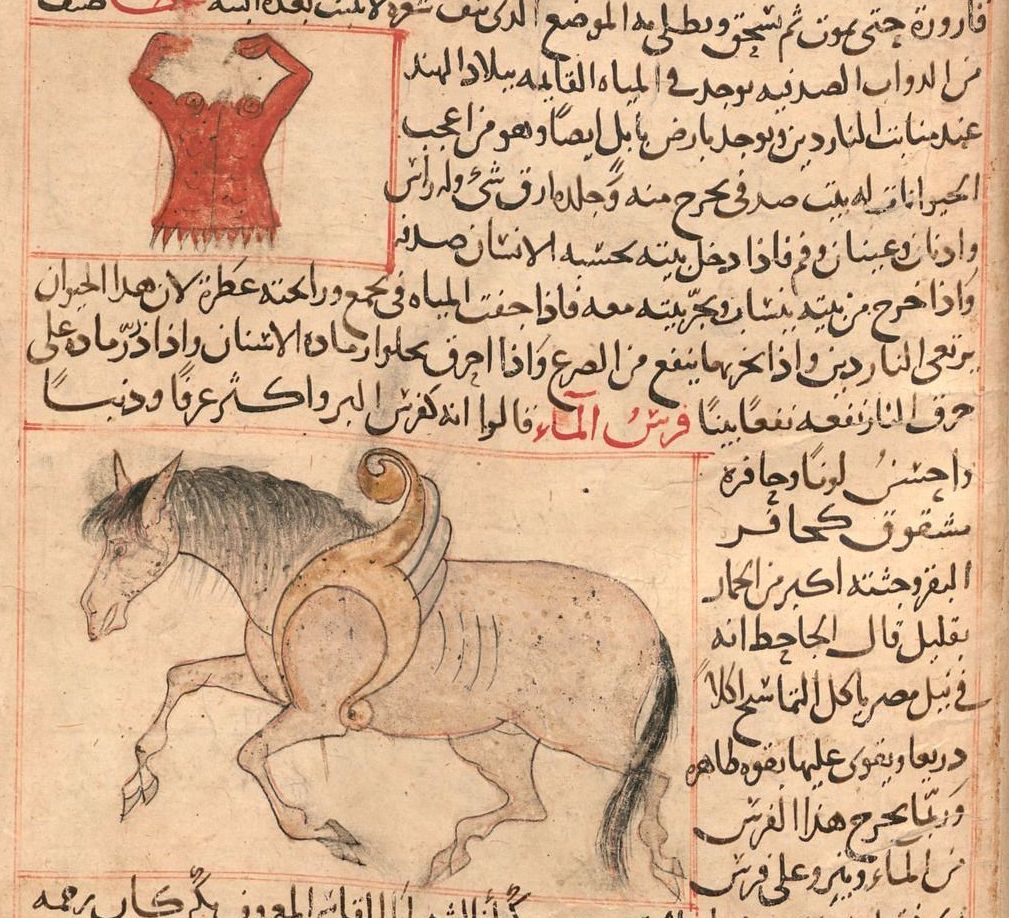 قارورة حتى يموت ثم يسحق ويطلى به الموضع الذى ينتف شعره لا ينبت بعده البتة صنف
من الدواب الصدفيه يوجد فى المياه القايمه ببلاد الهند
عند منابت الناردين ويوجد بارض بابل ايضًا وهو من اعجب
الحيوانات له بيت صدفى يخرج منه وجلده ارق شئ وله راس
واذنان وعينان وفم فاذا دخل بيته يحسبه الانسان صدفه
واذا خرج من بيته ينساب ويجرّ بيته معه فاذا جفت المياه فى يجمع ورائحته عطرة لان هذا الحيوان
يرتعى الناردين واذا بخر بها ينفع من الصرع واذا احرق يجلوا رماده الاسنان واذا ذرّ رماده على
حرق النار نفعه نفعًا بينًا فرس المآء قالوا انه كفرس البر واكثر عرفًا وذنبًا
واحسن لونًا وحافره
مشقوق كحافر
البقر وجثته اكبر من الحمار
بقليل قال الجاحظ انه
فى نيل مصر ياكل التماسيح اكلاً
ذريعا ويقوى عليها بقوه ظاهره
وربّما يخرج هذا الفرس
من المآء وينزو على فرس